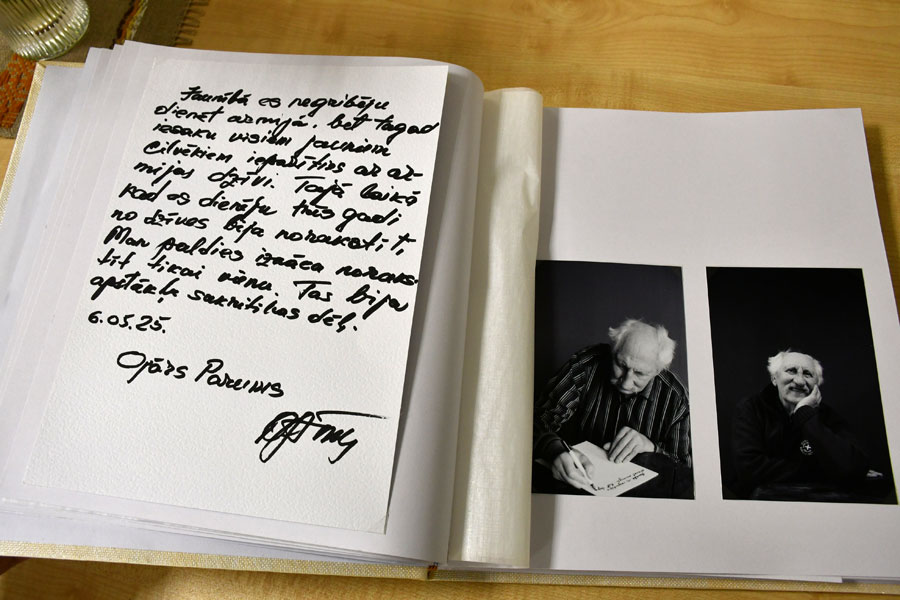 Jaunībā es negribēju
dienēt armijā, bet tagad
iesaku visiem jauniem
cilvēkiem iepazīties ar ar-
mijas dzīvi. Tajā laikā
kad es dienēju trīs gadi
no dzīves bija norakstīt,
Man paldies iznāca noraks-
tīt tikai vienu. Tas bija
apstākļu sakritības dēļ.
6.05.25.
Ojārs